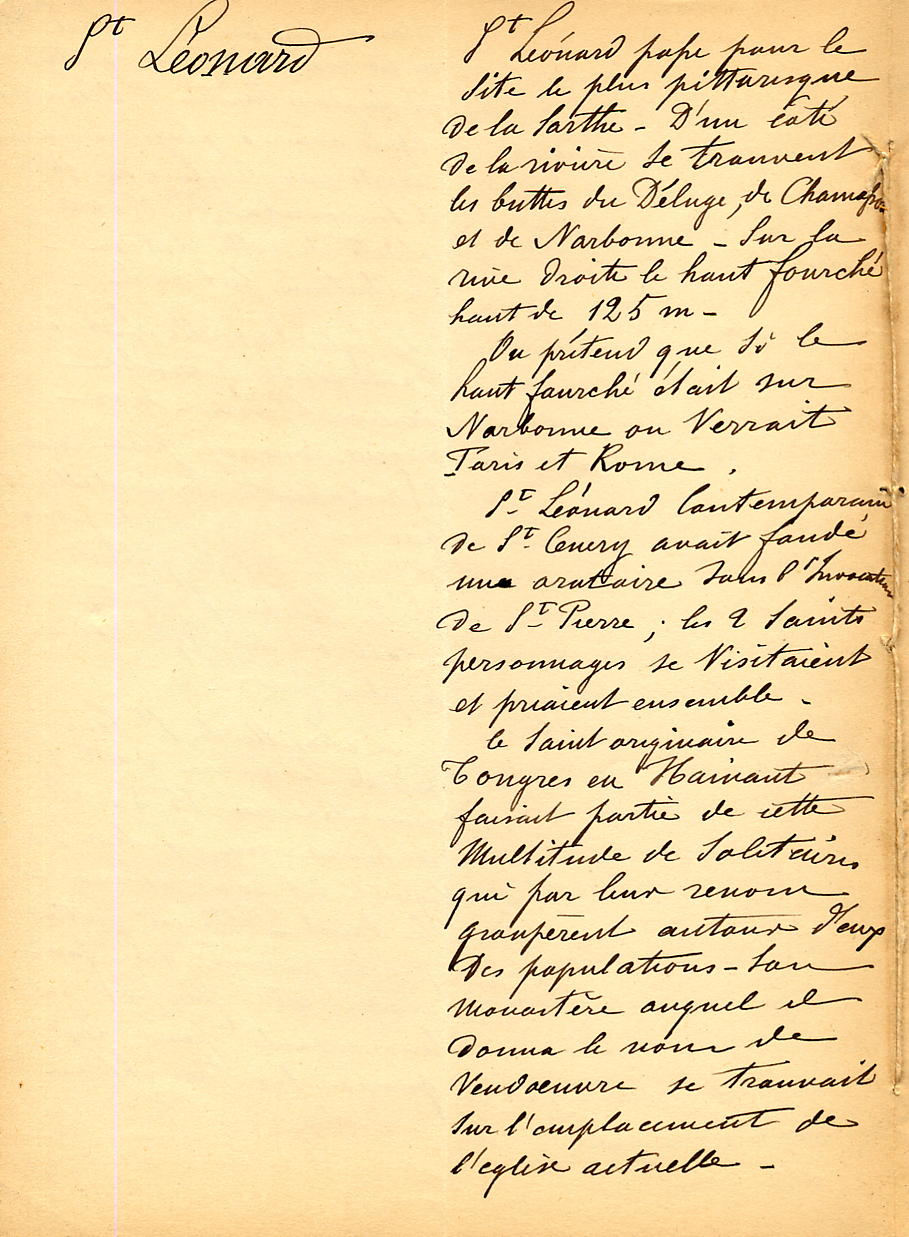 St Léonard
St Léonard pape pour le
site le plus pittoresque
de la Sarthe - D'un côté
de la rivière se trouvent
les buttes du Déluge, de
et de Narbonne - Sur la
rive droite le haut fourché
haut de 125 m -
On prétend que si le
haut fourché était sur
Narbonne on verrait
Paris et Rome.
St Léonard contemporain
de St Cenery avait fondé
une oratoire sous l'Invocation
de St Pierre ; les 2 Saints
personnages se visitaient
et priaient ensemble -
le Saint originaire de
Tongres en Hainaut
faisait partie de cette
Multitude de Solitaires
qui par leur renom
groupèrent autour d'eux
des populations - Son
Monastère auquel il
donna le nom de
Vendoeuvre se trouvait
sur l'emplacement de
l'église actuelle -